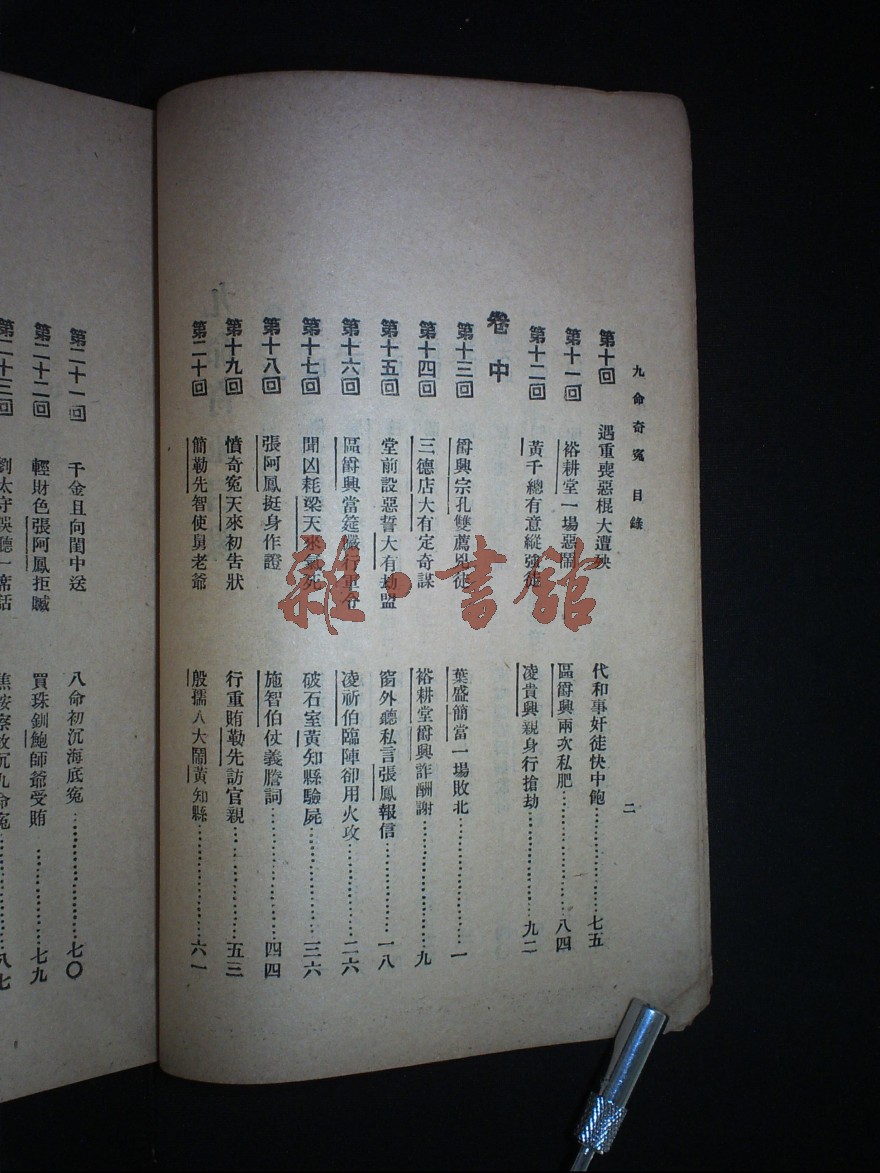 九命奇冤 目錄
二
第十回 遇重喪惡棍大遭殃 代和事奸徒快中飽…………七五
第十一回 裕耕堂一場惡鬧 區爵興兩次私肥…………八四
第十二回 黃千總有意縱強徒 凌貴興親身行搶劫…………九二
卷中
第十三回 爵興宗孔雙薦兇徒 葉盛簡當一場敗北…………一
第十四回 三德店大有定奇謀 裕耕堂爵興詐酬謝…………九
第十五回 堂前設惡誓大有劫盟 窗外聽私言張鳳報信…………一八
第十六回 區爵興當筵嚴行軍令 凌祈伯臨陣卻用火攻…………二六
第十七回 聞凶耗梁天來氣死 破石室黃知縣驗屍…………三六
第十八回 張阿鳳挺身作證 施智伯仗義謄詞…………四四
第十九回 憤奇冤天來初吿狀 行重賄勒先訪官親…………五三
第二十回 簡勒先智使舅老爺 殷孺人大鬧黃知縣…………六一
第二十一回 千金且向閨中送 八命初沉海底冤…………七〇
第二十二回 輕財色張阿鳳拒贓 買珠釧鮑師爺受賄…………七九
第二十三回 劉太守誤聽一席話 焦按察故沉九命冤…………八七
雜·書館